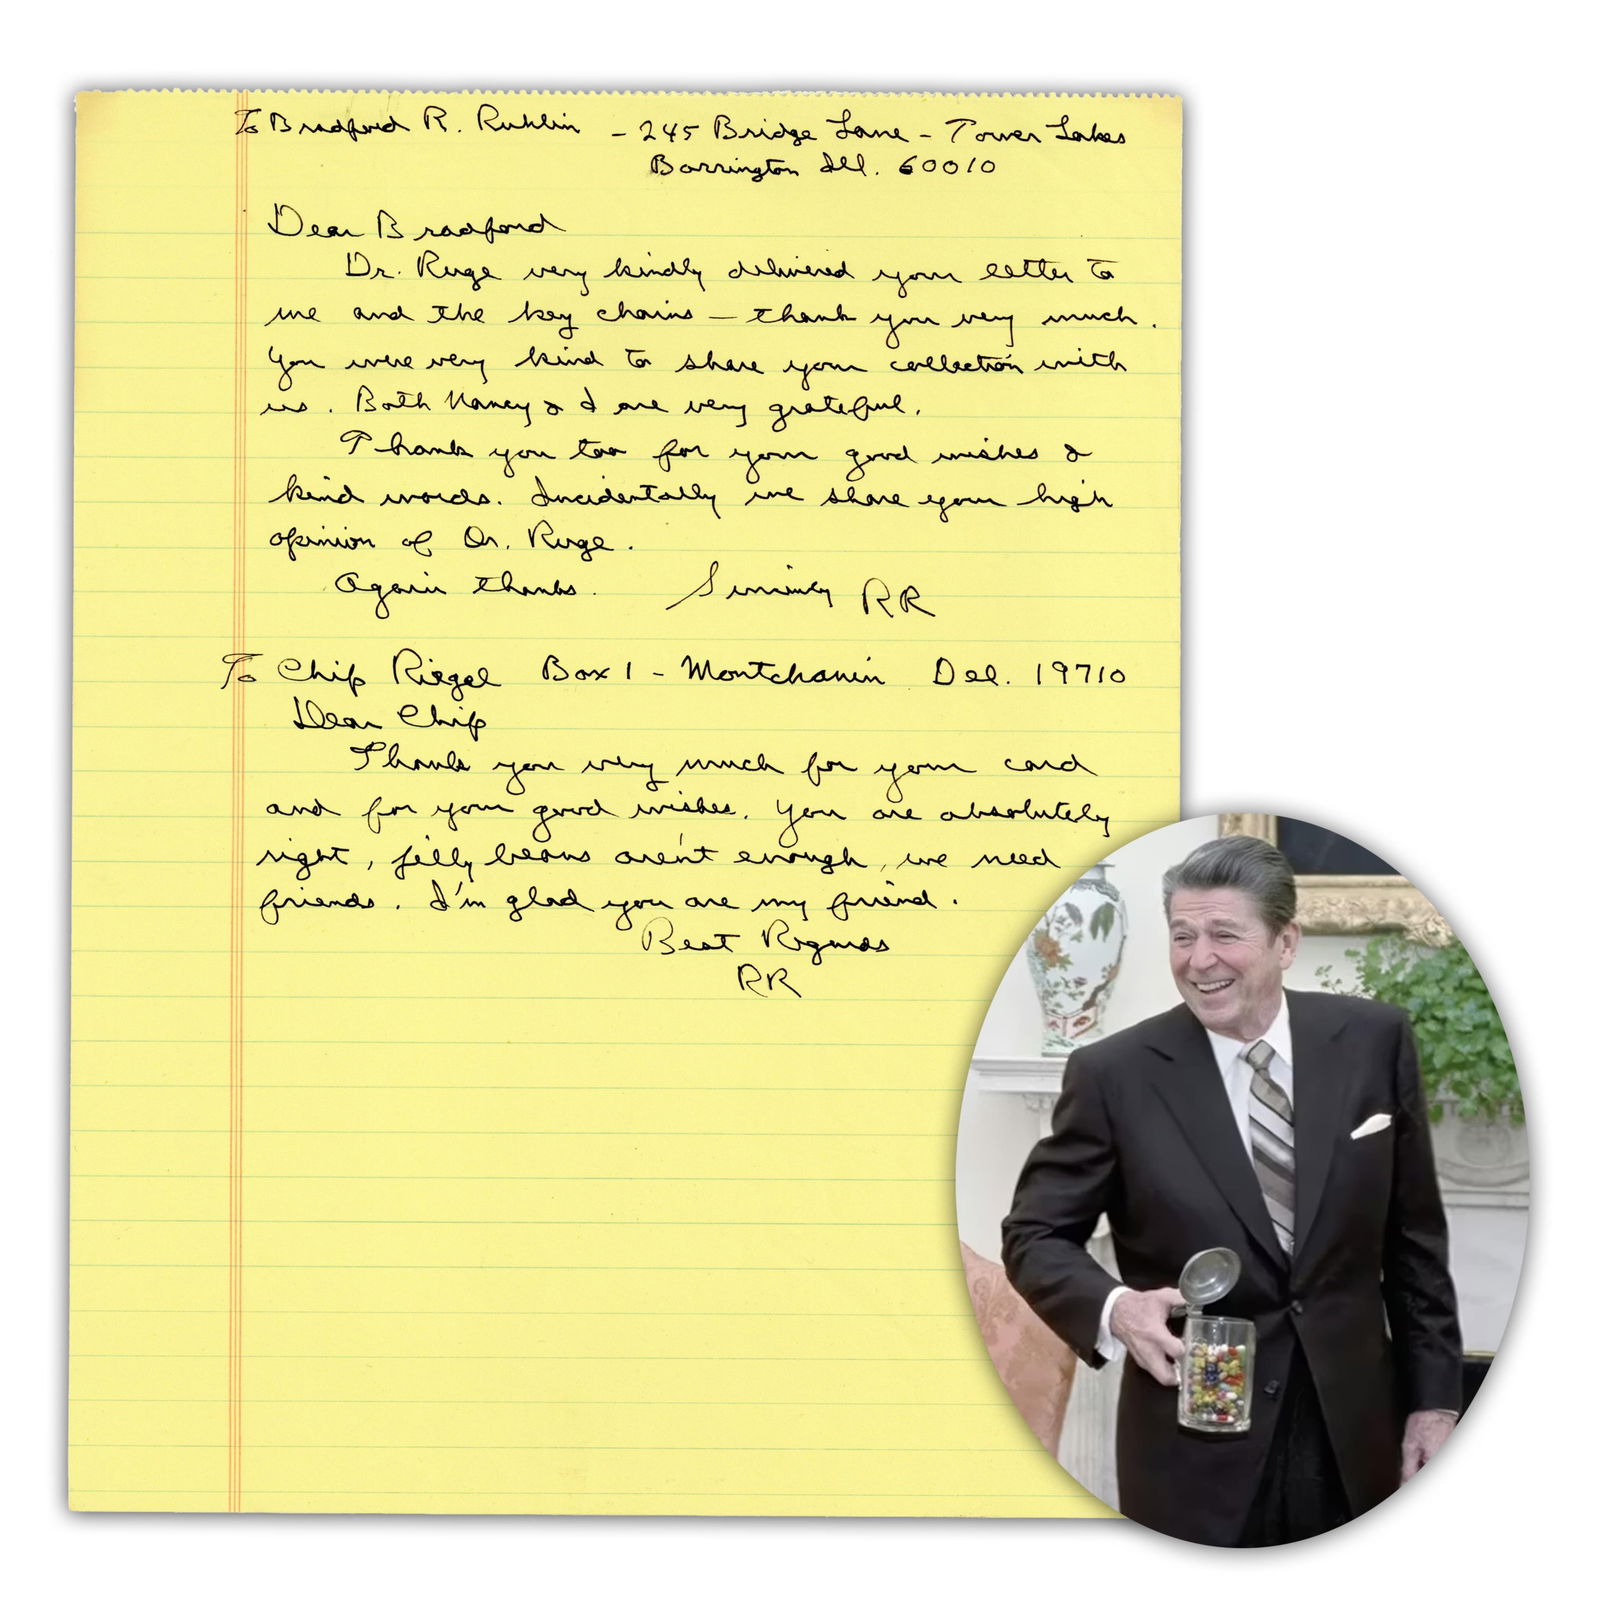 To Bradford R. Ruhlin - 245 Bridge Lane - Tower Lakes
Barrington Ill. 60010
Dear Bradford
Dr. Ruge very kindly delivered your letter to
me and the key chains — thank you very much.
You were very kind to share your collection with
us. Both Nancy & I are very grateful.
Thank you too for your good wishes &
kind words. Incidentally we share your high
opinion of Dr. Ruge.
Again thanks. Sincerely RR
To Chip Riegel Box 1 - Montchanin Del. 19710
Dear Chip
Thank you very much for your card
and for your good wishes. You are absolutely
right, jelly beans aren't enough, we need
friends. I'm glad you are my friend.
Best Regards
RR